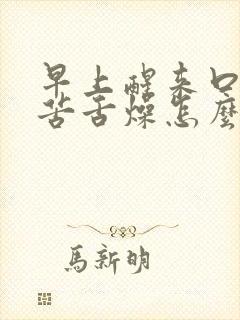 早上醒来口
苦舌燥怎麼
馬新明